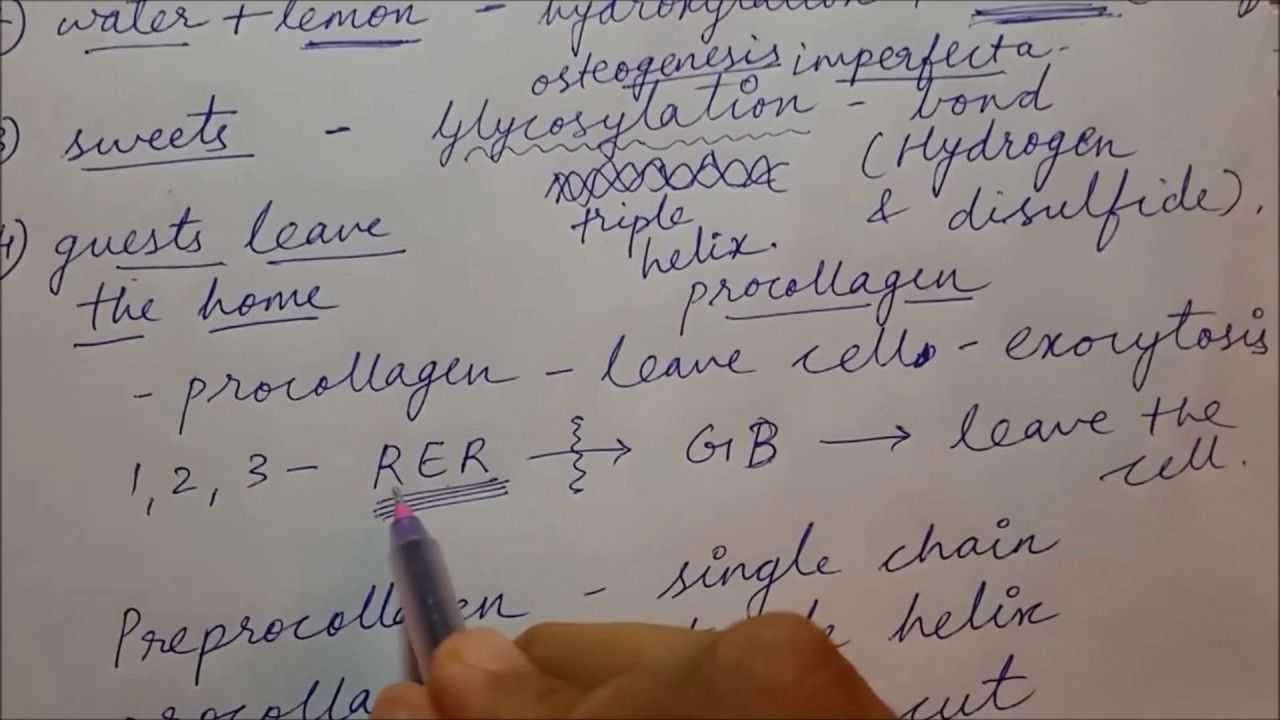 water + lemon - hydroxylation
osteogenesis imperfecta.
3) sweets - Glycosylation - bond
(Hydrogen
& disulfide).
triple
helix.
4) guests leave
the home
procollagen
- procollagen - leave cell - exocytosis
1, 2, 3 - RER → GB → leave the
cell.
Preprocollagen - single chain
helix
cut